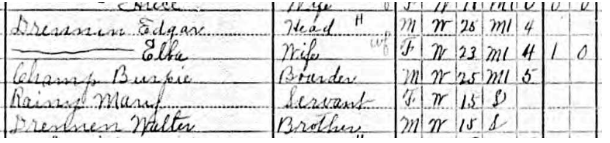 Wife F W M1 0 0
Drennin Edgar Head H M W 28 M1 4
Elba Wife F W 23 M1 4 1 0
Champ Burpie Boarder M W 25 M1 5
Rainy Mary Servant F W 15 S
Drennen Walter Brother M W 15 S